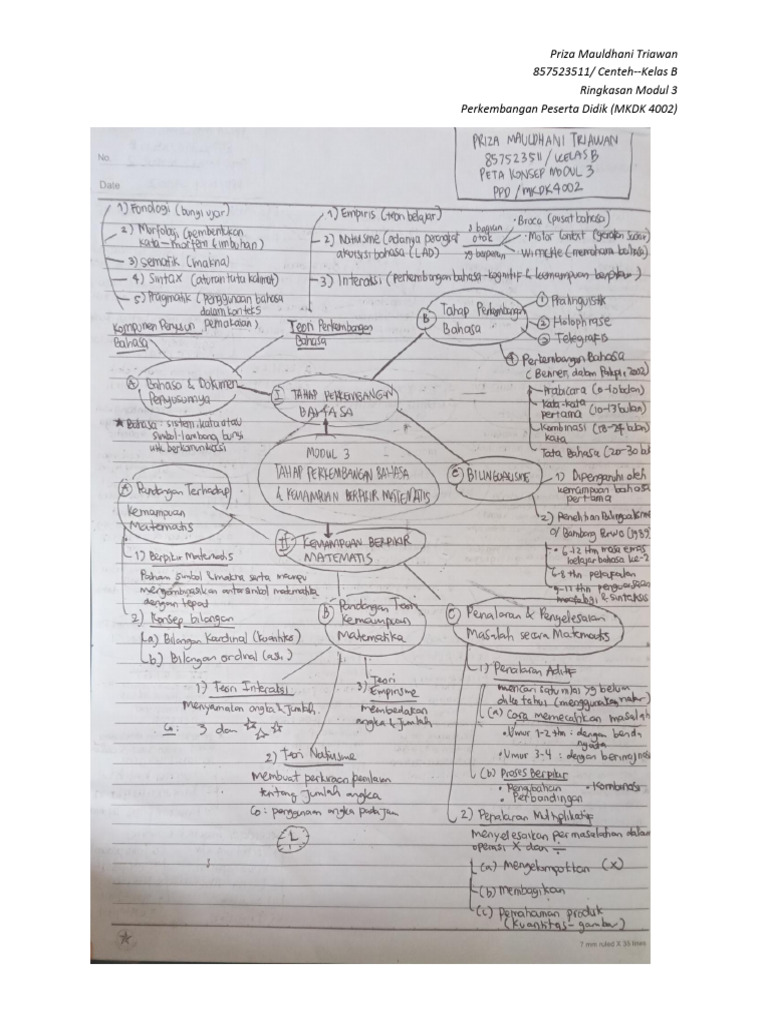 Priza Mauldhani Triawan
857523511/ Centeh--Kelas B
Ringkasan Modul 3
Perkembangan Peserta Didik (MKDK 4002)
No.
Date
PRIZA MAULDHANI TRIAWAN
857523511/KELAS B
PETA KONSEP MODUL 3
PPD/MKDK4002
1) Fonologi (bunyi ujar)
2) Morfologi (pembentukan
kata-morfem & imbuhan)
3) Sematik (makna)
4) Sintax (aturan tata kalimat)
5) Pragmatik (Penggunaan bahasa
dalam konteks
pemakaian)
Komponen Penyusun
Bahasa
1) Empiris (teori belajar)
2) Natisme (adanya perangkat
akuisisi bahasa (LAD)
3 bagian
otak
yg berperan
• Broca (pusat bahasa)
• Motor
• Wernicke (memahami bahasa)
3) Interaksi (Perkembangan bahasa-kognitif & kemampuan berpikir)
Teori Perkembangan
Bahasa
B Tahap Perkembangan
Bahasa
1 Pralinguistik
2 Holophrase
3 Telegrafis
4 Perkembangan Bahasa
dalam 2002)
Prabicara (0-10 bulan)
Kata-kata
pertama (10-13 bulan)
Kombinasi (18-24 bulan)
kata
Tata Bahasa (20-30 bl
A Bahasa & Dokumen
Penyusunnya
I TAHAP PERKEMBANGAN
BAHASA
★ Bahasa: sistem, kata atau
simbol-lambang bunyi
utk berkomunikasi
MODUL 3
TAHAP PERKEMBANGAN BAHASA
& KEMAMPUAN BERPIKIR MATEMATIS
C BILINGUALISME
1) Dipengaruhi oleh
kemampuan bahasa
pertama
2) Penelitian Bilingualisme
O/ Bambang
• 6-12 thn masa emas
belajar bahasa ke-2
6-8 thn
9-11 thn penguasaan
& sintaksis
A Pandangan Terhadap
Kemampuan
Matematis
II KEMAMPUAN BERPIKIR
MATEMATIS
1) Berpikir Matematis
Paham simbol & makna serta mampu
antar simbol matematika
dengan tepat
2) Konsep bilangan
(a) Bilangan Kardinal (kuantitas)
b) Bilangan ordinal
B Pandangan Teori
Kemampuan
Matematika
C Penalaran & Penyelesaian
Masalah secara Matematis
1) Teori Interaksi
Menyamakan angka & jumlah.
Co: 3 dan ☆☆☆
3) Teori
Empirisme
Membedakan
angka & jumlah
2) Teori Natisme
Membuat perkiraan penilaian
tentang jumlah angka
Co: penggunaan angka pada jam
1) Penalaran Aditif
mencari satu nilai yg belum
diketahui
(a) Cara memecahkan masalah
• Umur 1-2 thn: dengan benda
nyata
• Umur 3-4: dengan
(b) Proses Berpikir
• Pengubahan • Kombinasi
• Perbandingan
2) Penalaran Multiplikatif
Menyelesaikan permasalahan dalam
operasi X dan ÷
(a) Mengelompokkan (x)
(b) Membagikan
(c) Pemahaman produk
(kuantitas-gambar)
7 mm ruled X 35 lines